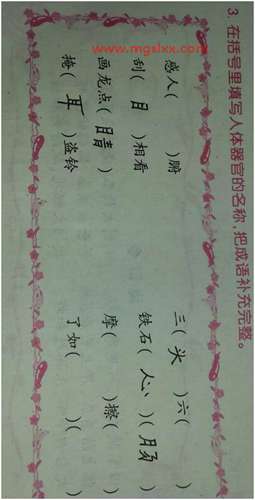 www.mgslxx.com
3. 在括号里填写人体器官的名称,把成语补充完整。
感人( )腑 三(头)六( )
刮(目)相看 铁石(心)(肠)
画龙点(睛) 摩( )擦( )
掩(耳)盗铃 了如( )( )